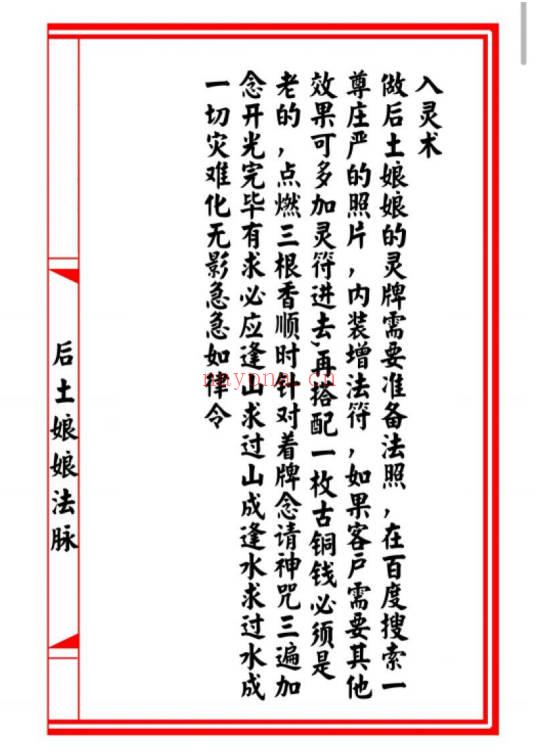 入灵术
做后土娘娘的灵牌需要准备法照,在百度搜索一
尊庄严的照片,内装增法符,如果客户需要其他
效果可多加灵符进去,再搭配一枚古铜钱必须是
老的,点燃三根香顺时针对着牌念请神咒三遍加
念开光完毕有求必应逢山求过山成逢水求过水成
一切灾难化无影急急如律令
后土娘娘法脉
nayona.cn